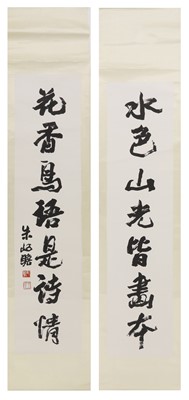 水色山光皆畫本
花香鳥語是詩情
朱屺瞻